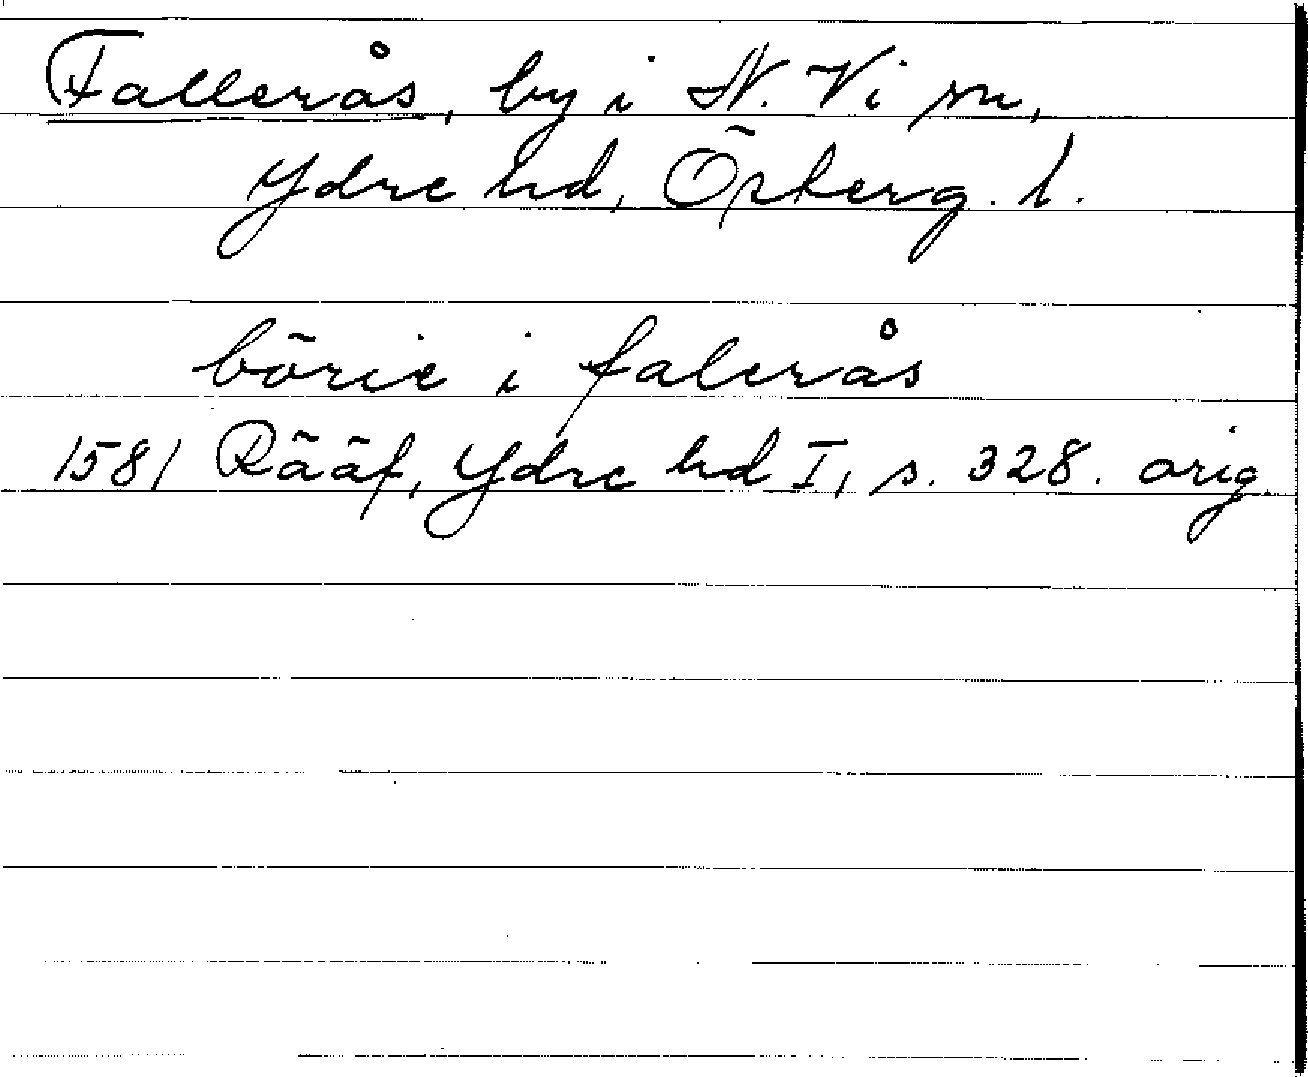 Fallerås, by i N. Vi sn,
Ydre hd, Österg. l.
börie i falerås
1581 Rääf, Ydre hd I, s. 328. orig